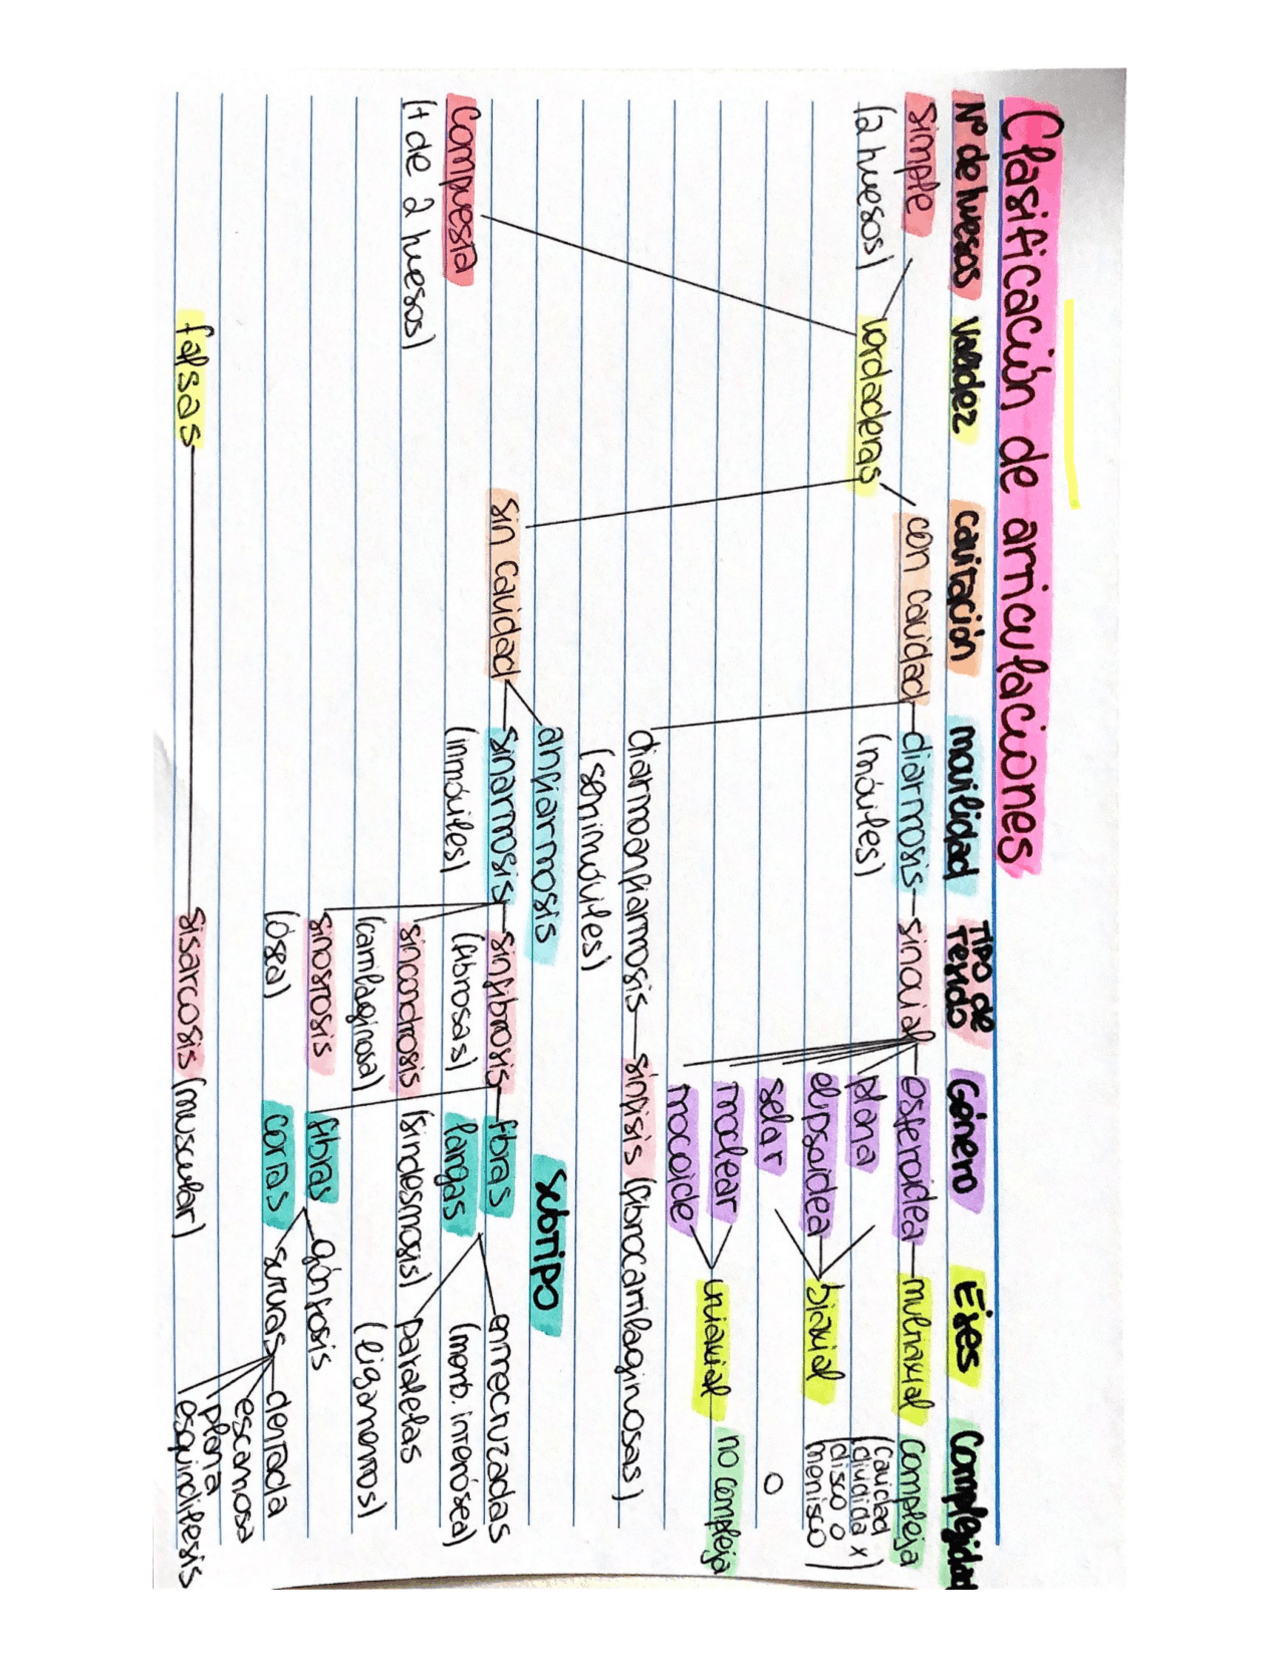 Clasificación de articulaciones
Nº de huesos Validez Cavitación movilidad Tipo de Tejido Género Ejes Complejidad
simple
(2 huesos)
verdaderas
con cavidad
diartrosis
(móviles)
sinovial
esferoidea
plana
elipsoidea
selar
troclear
trocoide
multiaxial
biaxial
uniaxial
compleja
(cavidad
dividida x
disco o
menisco)
o
no compleja
diartroanfiartrosis
sínfisis (fibrocartilaginosas)
(semimóviles)
Compuesta
(+ de 2 huesos)
sin cavidad
anfiartrosis
sinartrosis
(inmóviles)
sinfibrosis
(fibrosas)
sincondrosis
(cartilaginosa)
sinostosis
(ósea)
subtipo
fibras
largas
(sindesmosis)
entrecruzadas
(memb. interósea)
paralelas
(ligamentos)
fibras
cortas
gónfosis
suturas
dentada
escamosa
plana
esquindilesis
falsas
sisarcosis (muscular)